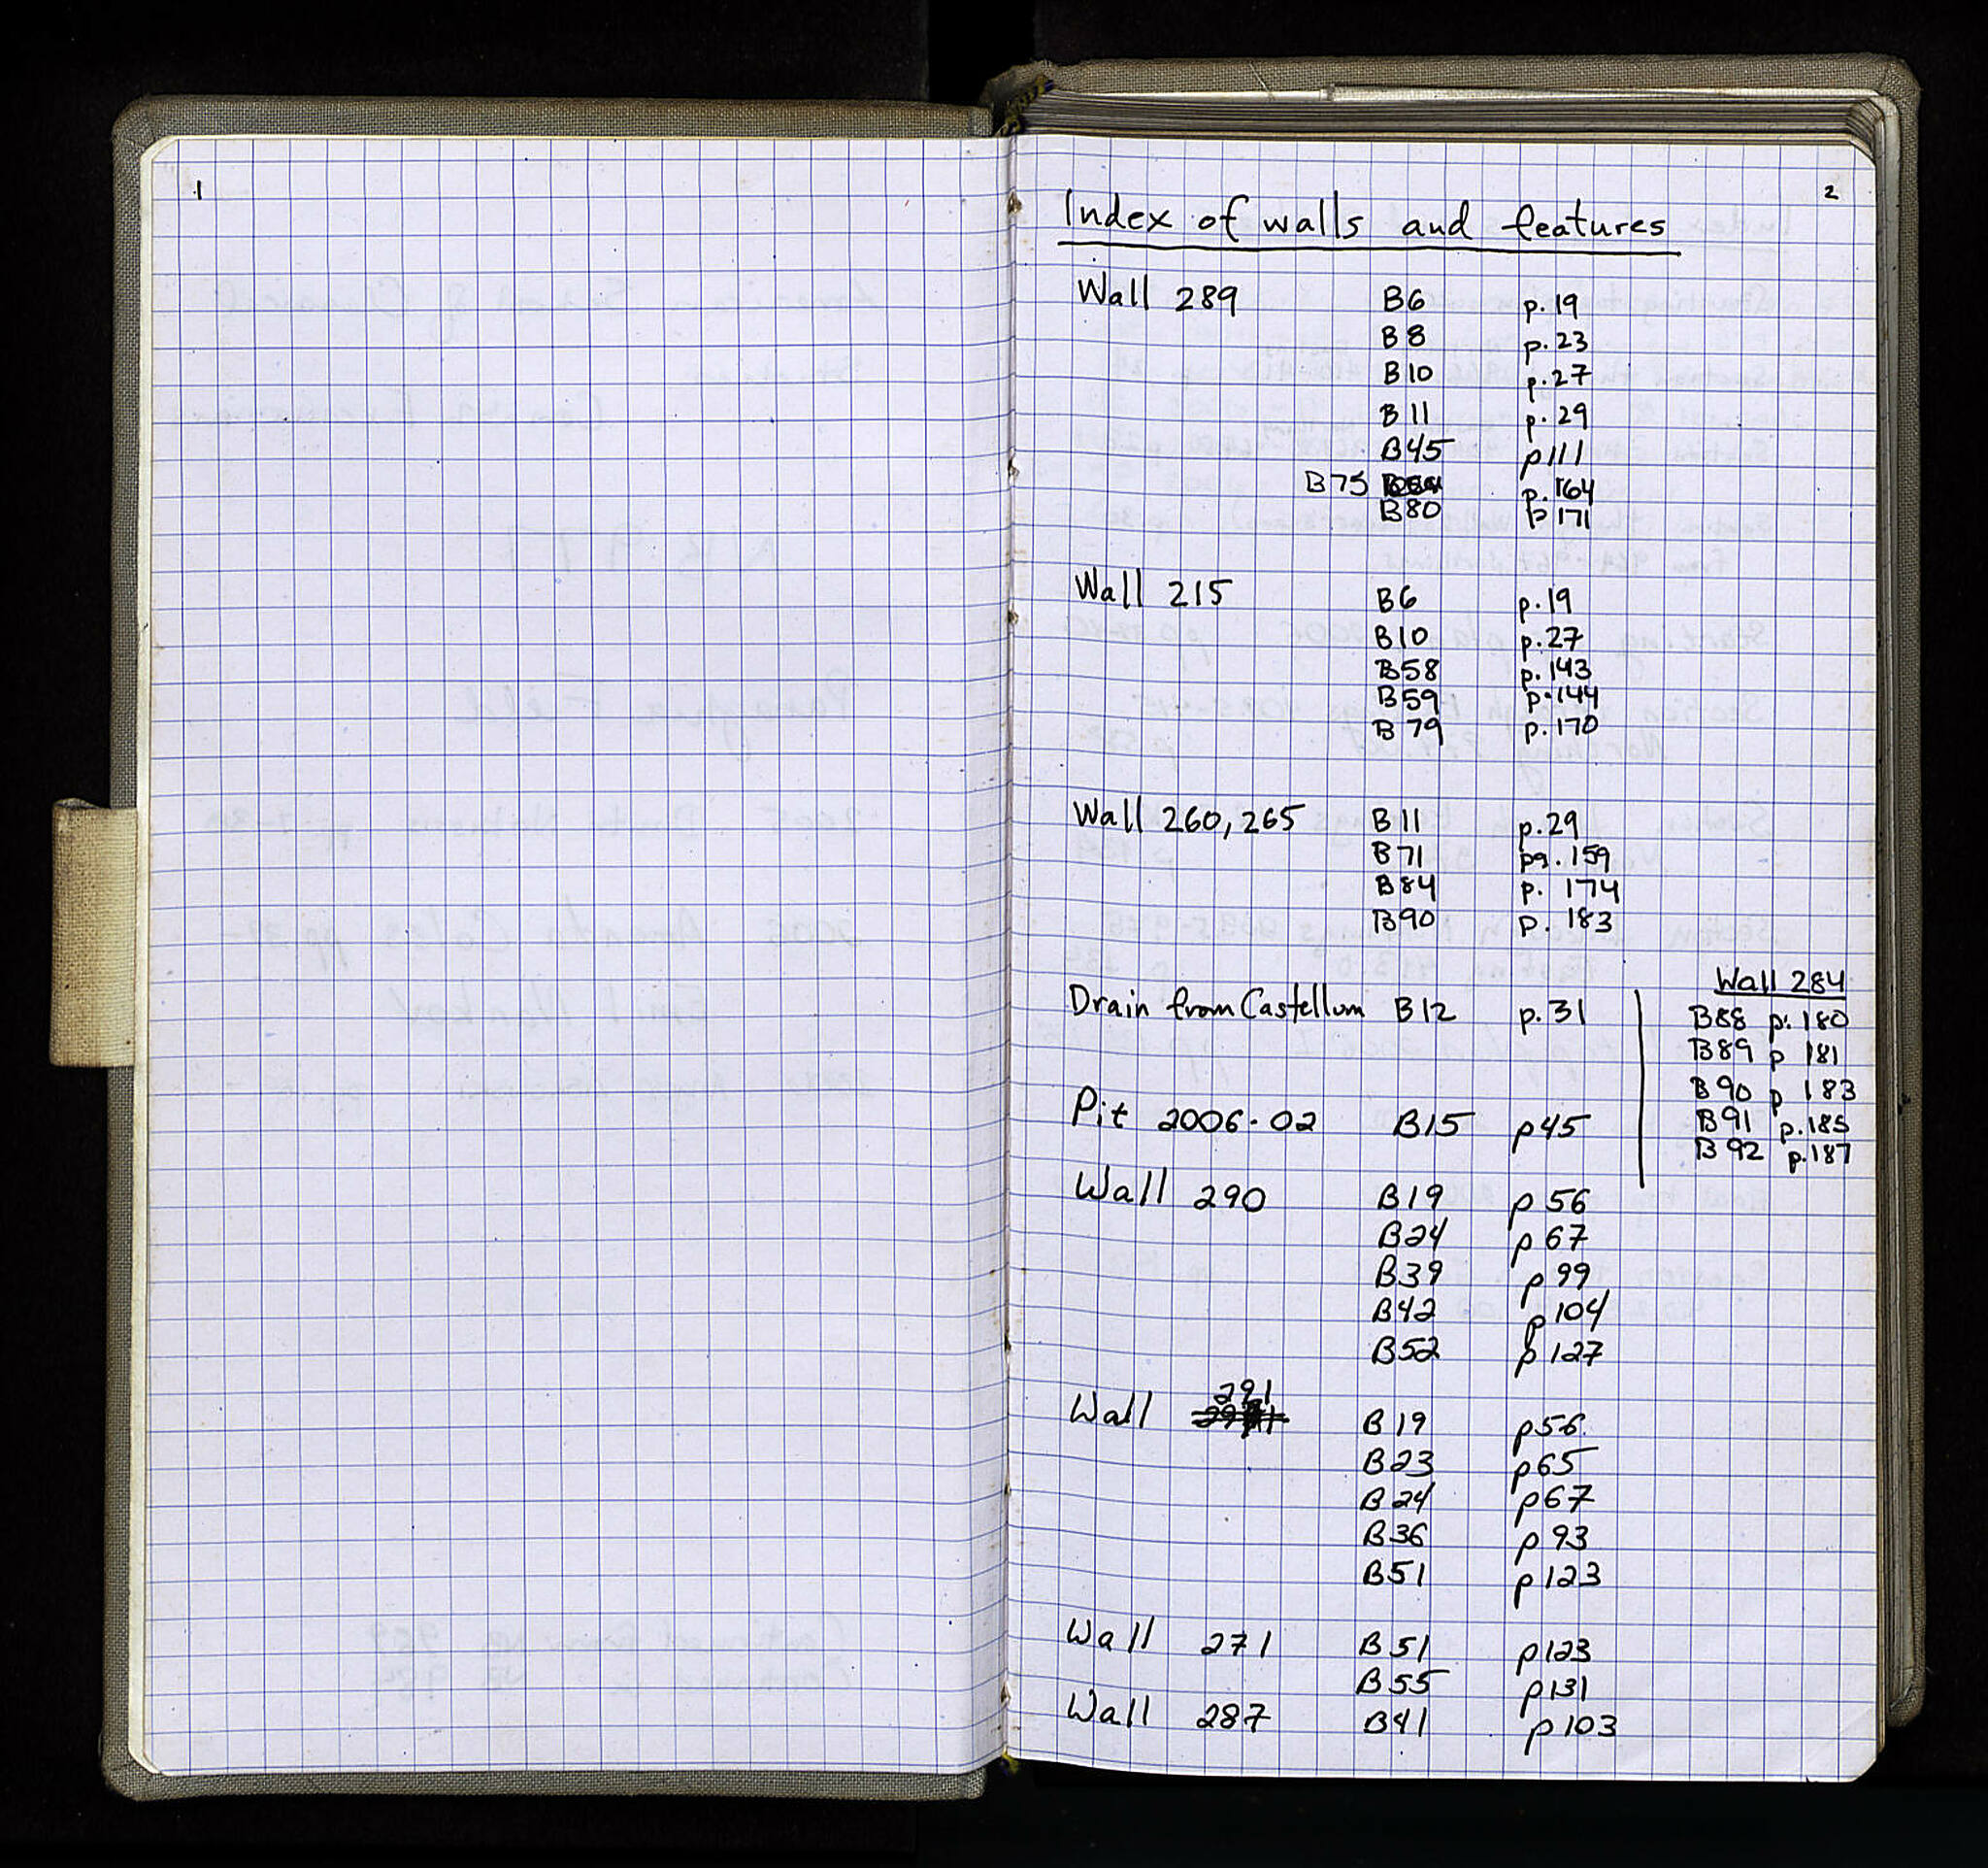 1
2
Index of walls and features
Wall 289 B6 p.19
B8 p.23
B10 p.27
B11 p.29
B45 p111
B75 p.164
B80 p 171
Wall 215 B6 p.19
B10 p.27
B58 p.143
B59 p.144
B79 p.170
Wall 260, 265 B11 p.29
B71 pg. 159
B84 p. 174
B90 p. 183
Drain from Castellum B12 p.31
Pit 2006-02 B15 p45
Wall 284
B88 p. 180
B89 p 181
B90 p 183
B91 p.185
B92 p.187
Wall 290 B19 p56
B24 p67
B39 p99
B42 p104
B52 p127
Wall 291 B19 p56
B23 p65
B24 p67
B36 p93
B51 p123
Wall 271 B51 p123
B55 p131
Wall 287 B41 p103